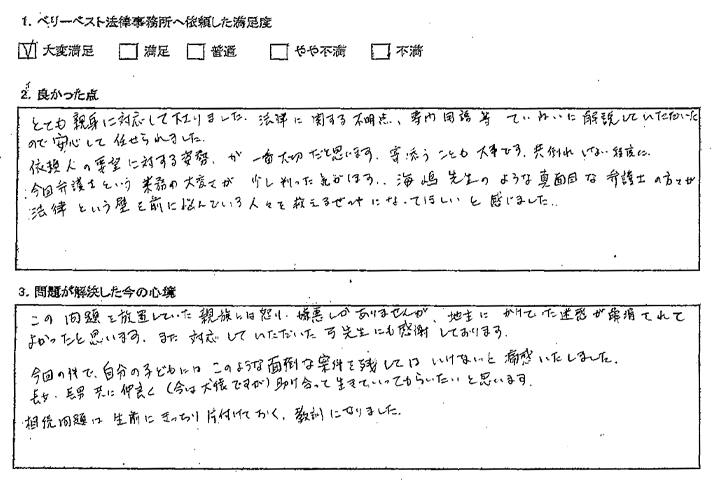 1. ベリーベスト法律事務所へ依頼した満足度
☑ 大変満足 □ 満足 □ 普通 □ やや不満 □ 不満
2. 良かった点
とても親身に対応して下さりました。法律に関する不明点、専門用語等 ていねいに解説していただいた
ので安心して任せられました。
依頼人の要望に対する姿勢、が一番大切だと思います。寄り添うことも大事です。共倒れしない程度に。
今回弁護士という業務の大変さが少し判った気がします。海嶋先生のような真面目な弁護士の方々が
法律という壁を前に悩んでいる人々を救えるぜひになってほしいと感じました。
3. 問題が解決した今の心境
この問題を放置していた親族には怒り、嫌悪しかありませんが、地主にかけていた迷惑が解消されて
よかったと思います。また対応していただいた 先生にも感謝しております。
今回の件で、自分の子どもにはこのような面倒な案件を残してはいけないと痛感いたしました。
長女、長男 共に仲良く(今は犬猿ですが)助け合って生きていってもらいたいと思います。
相続問題は生前にきっちり片付けておく、教訓になりました。